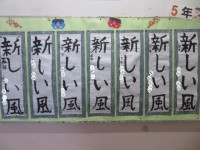 5年
新しい風
新しい風
新しい風
新しい風
新しい風
新しい風
新しい風